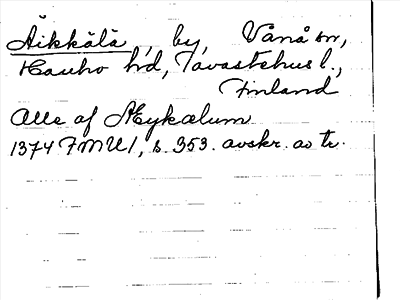 Äikkälä, by, Vånå sn,
Hauho hd, Tavastehus l.,
Finland
Alle af Æykælum
1374 FMU1, s. 353. avskr. av tr.